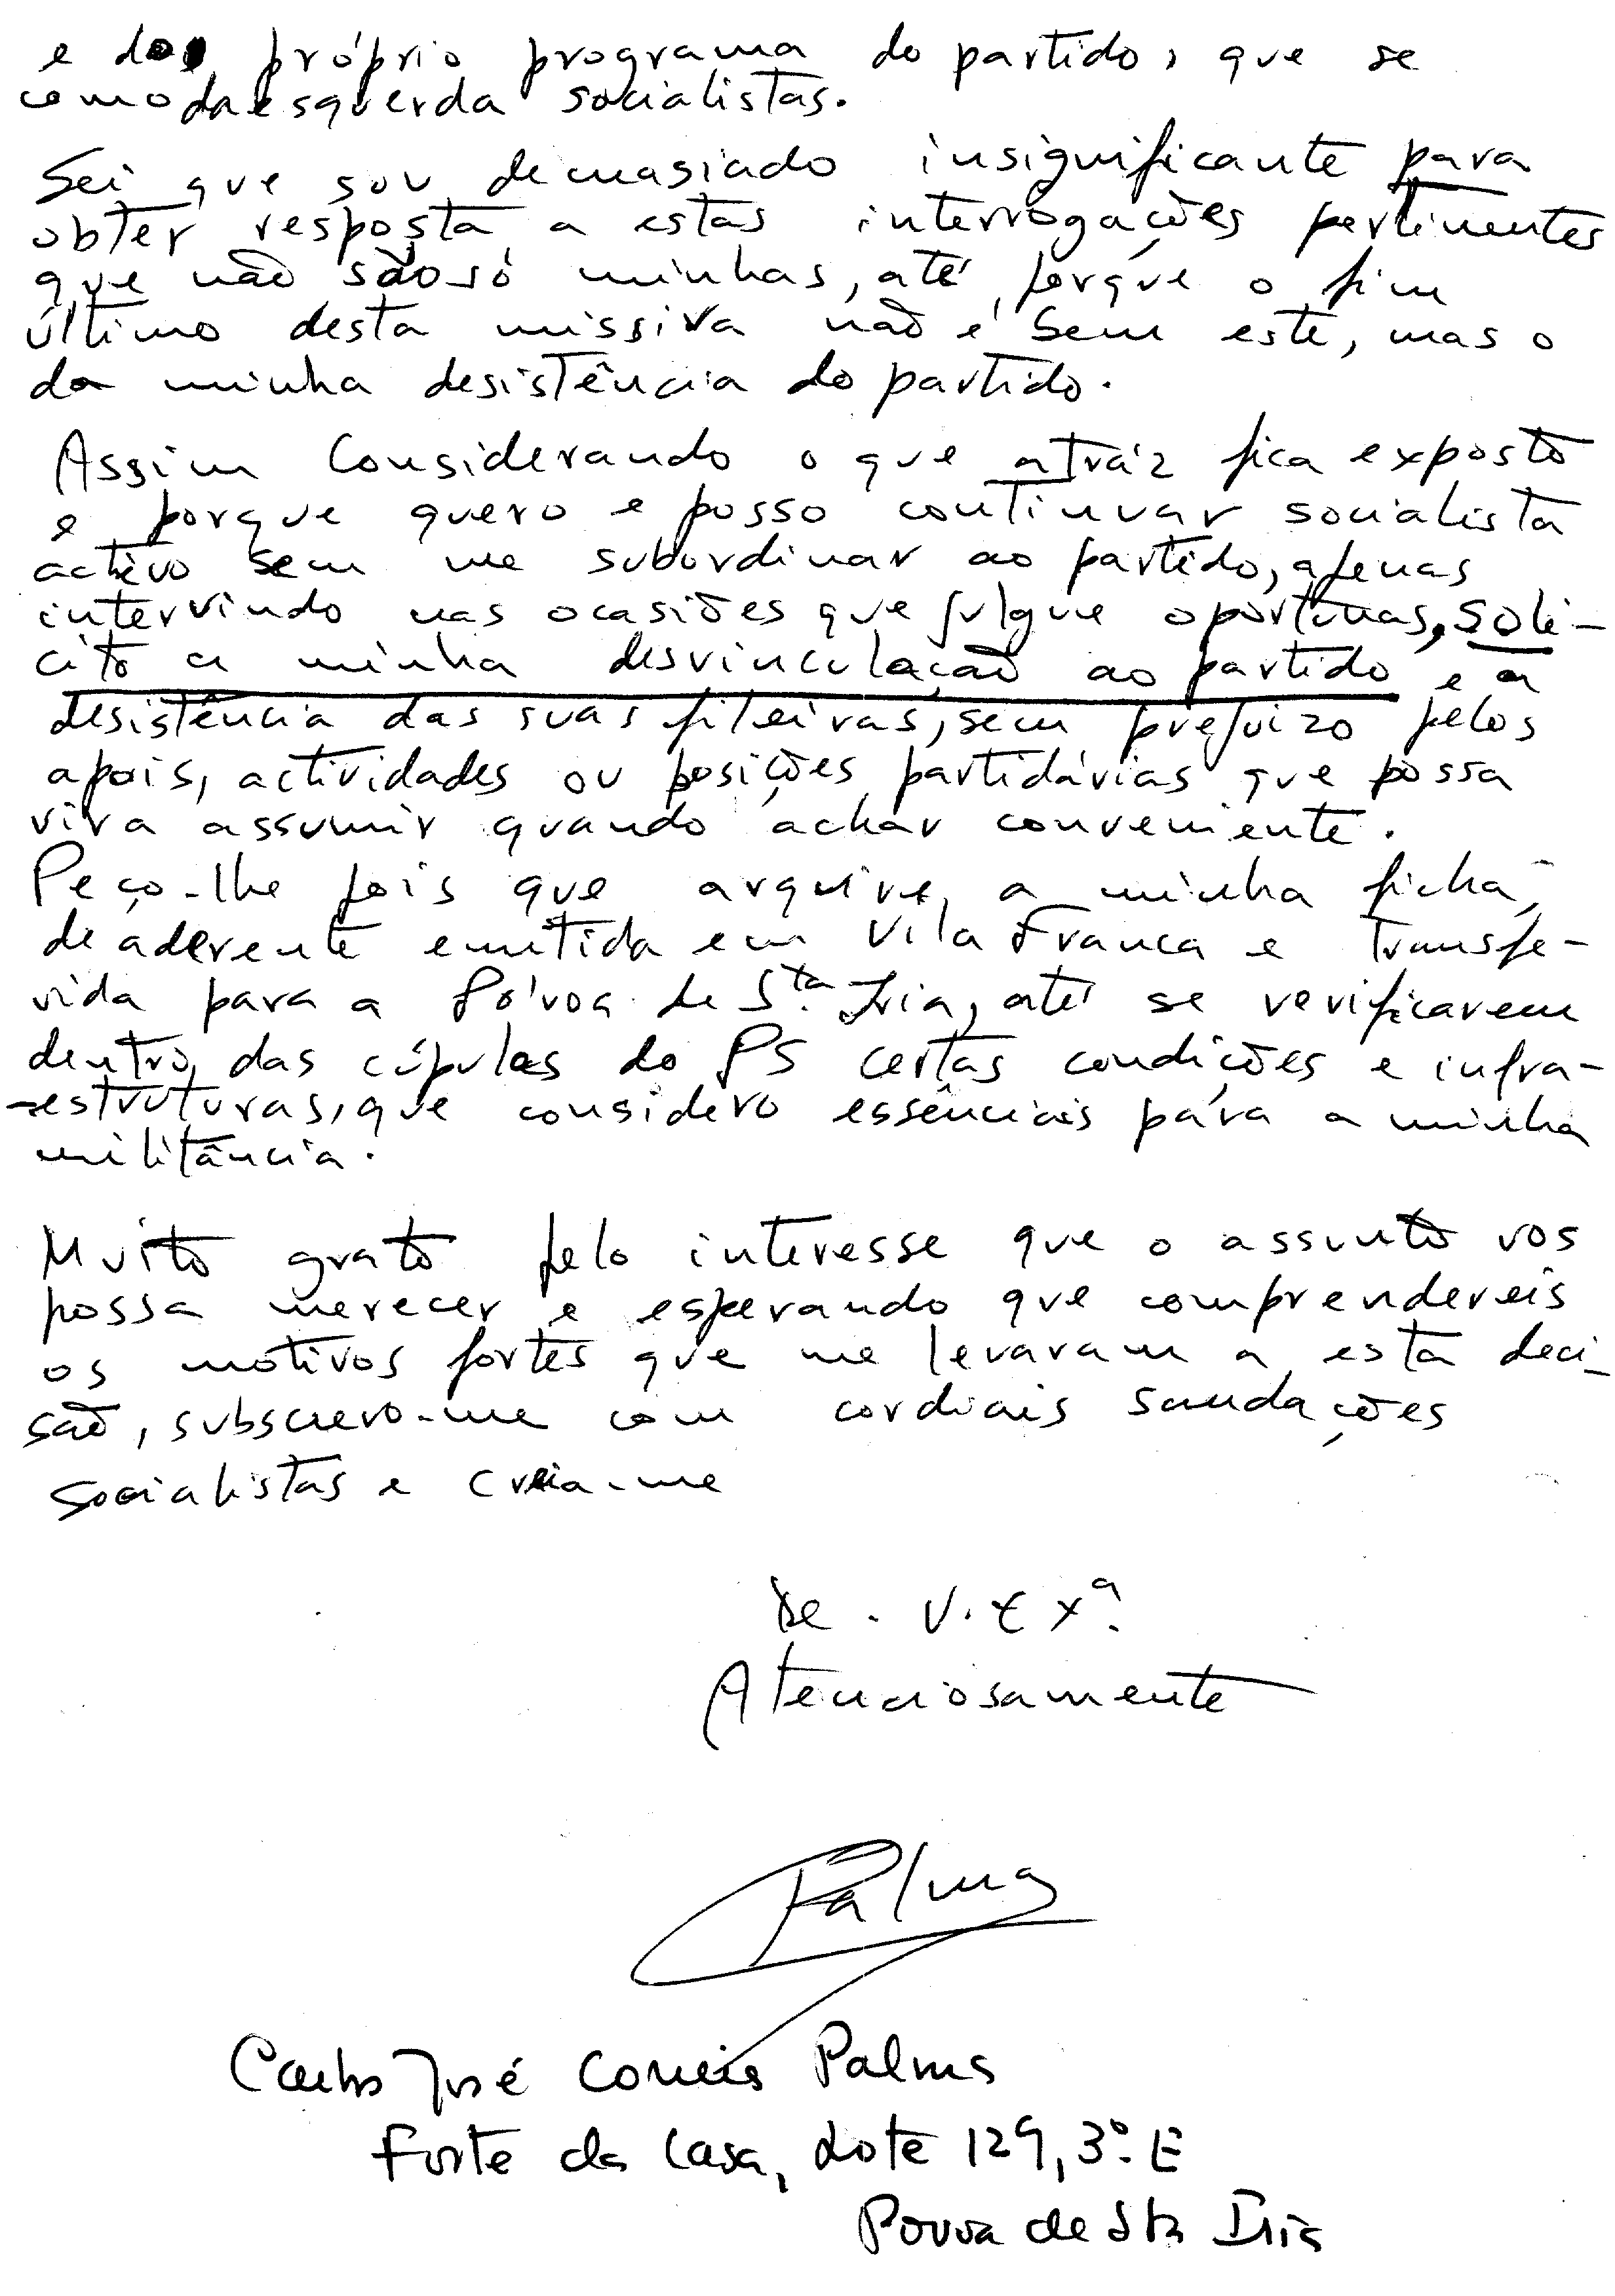 e do próprio programa do partido, que se
como da esquerda socialistas.
Sei que sou demasiado insignificante para
obter resposta a estas interrogações pertinentes
que não são só minhas, até porque o fim
último desta missiva não é sem este, mas o
da minha desistência do partido.
Assim considerando o que atráz fica exposto
e porque quero e posso continuar socialista
activo sem me subordinar ao partido, apenas
intervindo nas ocasiões que julgue oportunas, soli-
cito a minha desvinculação ao partido e a
desistência das suas fileiras, sem prejuizo pelos
apois, actividades ou posições partidárias que possa
vir a assumir quando achar conveniente.
Peço-lhe pois que arquive a minha ficha
de aderente emitida em Vila Franca e transfe-
rida para a Póvoa de Sta. Iria, até se verificarem
dentro das cúpulas do PS certas condições e infra-
-estruturas, que considero essênciais para a minha
militância.
Muito grato pelo interesse que o assunto vos
possa merecer e esperando que comprendereis
os motivos fortes que me levaram a esta deci-
são, subscrevo-me com cordiais saudações
socialistas e creia-me
De. V. Exª.
Atenciosamente
Palma
Carlos José Correia Palma
Forte da Casa, Lote 129, 3º. E
Povoa de Sta Iria